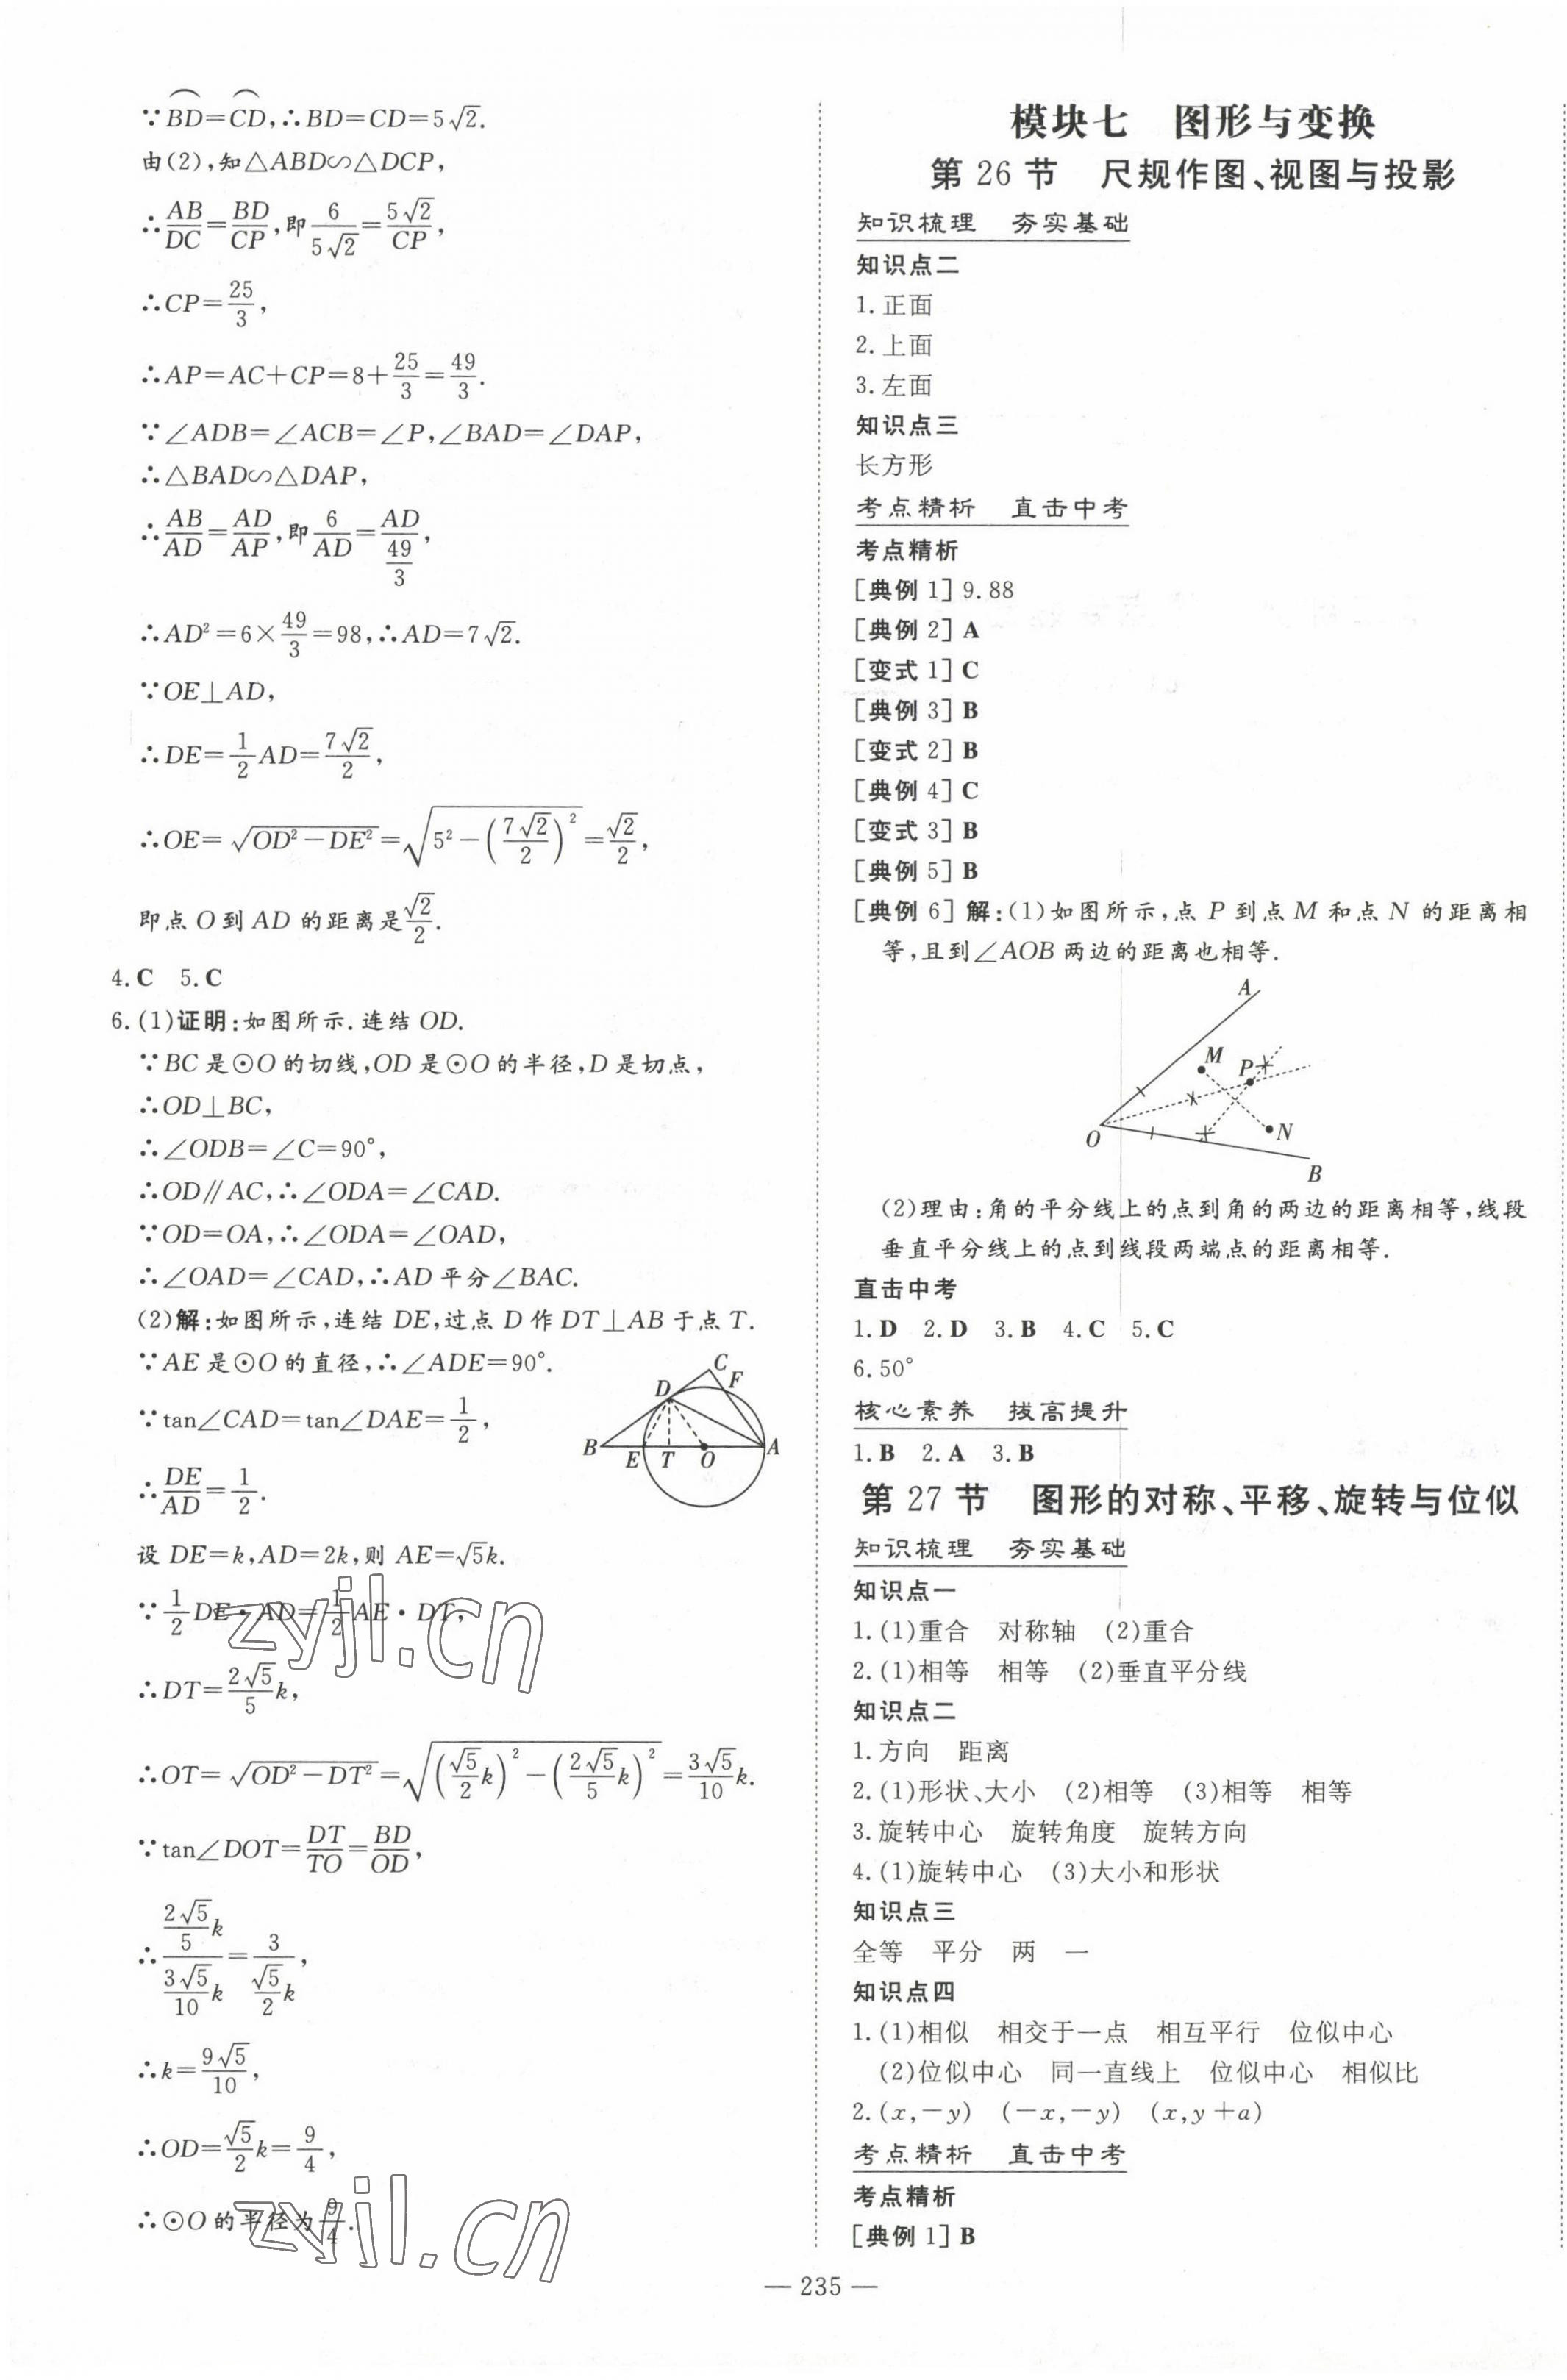 ∵BD=CD,∴BD=CD=5√2.
由(2),知△ABD∽△DCP,
∴AB/DC=BD/CP,即6/5√2=5√2/CP,
∴CP=25/3,
∴AP=AC+CP=8+25/3=49/3.
∵∠ADB=∠ACB=∠P,∠BAD=∠DAP,
∴△BAD∽△DAP,
∴AB/AD=AD/AP,即6/AD=AD/(49/3),
∴AD²=6×49/3=98,∴AD=7√2.
∵OE⊥AD,
∴DE=1/2AD=7√2/2,
∴OE=√(OD²-DE²)=√(5²-(7√2/2)²)=√2/2,
即点O到AD的距离是√2/2.
4.C 5.C
6.(1)证明:如图所示.连结OD.
∵BC是⊙O的切线,OD是⊙O的半径,D是切点,
∴OD⊥BC,
∴∠ODB=∠C=90°,
∴OD∥AC,∴∠ODA=∠CAD.
∵OD=OA,∴∠ODA=∠OAD,
∴∠OAD=∠CAD,∴AD平分∠BAC.
(2)解:如图所示,连结DE,过点D作DT⊥AB于点T.
∵AE是⊙O的直径,∴∠ADE=90°.
∵tan∠CAD=tan∠DAE=1/2,
∴DE/AD=1/2.
C
F
D
B
E
T
O
A
设DE=k,AD=2k,则AE=√5k.
∵1/2DE·AD=1/2AE·DT,
zyjl.cn
∴DT=2√5/5k,
∴OT=√(OD²-DT²)=√((√5/2k)²-(2√5/5k)²)=3√5/10k.
∵tan∠DOT=DT/TO=BD/OD,
∴(2√5/5k)/(3√5/10k)=3/(√5/2k),
∴k=9√5/10,
∴OD=√5/2k=9/4,
∴⊙O的半径为9/4.
zyjl.cn
模块七 图形与变换
第26节 尺规作图、视图与投影
知识梳理 夯实基础
知识点二
1.正面
2.上面
3.左面
知识点三
长方形
考点精析 直击中考
考点精析
[典例1]9.88
[典例2]A
[变式1]C
[典例3]B
[变式2]B
[典例4]C
[变式3]B
[典例5]B
[典例6]解:(1)如图所示,点P到点M和点N的距离相
等,且到∠AOB两边的距离也相等.
A
M
P
O
N
B
(2)理由:角的平分线上的点到角的两边的距离相等,线段
垂直平分线上的点到线段两端点的距离相等.
直击中考
1.D 2.D 3.B 4.C 5.C
6.50°
核心素养 拔高提升
1.B 2.A 3.B
第27节 图形的对称、平移、旋转与位似
知识梳理 夯实基础
知识点一
1.(1)重合 对称轴 (2)重合
2.(1)相等 相等 (2)垂直平分线
知识点二
1.方向 距离
2.(1)形状、大小 (2)相等 (3)相等 相等
3.旋转中心 旋转角度 旋转方向
4.(1)旋转中心 (3)大小和形状
知识点三
全等 平分 两 一
知识点四
1.(1)相似 相交于一点 相互平行 位似中心
(2)位似中心 同一直线上 位似中心 相似比
2.(x,-y) (-x,-y) (x,y+a)
考点精析 直击中考
考点精析
[典例1]B
— 235 —